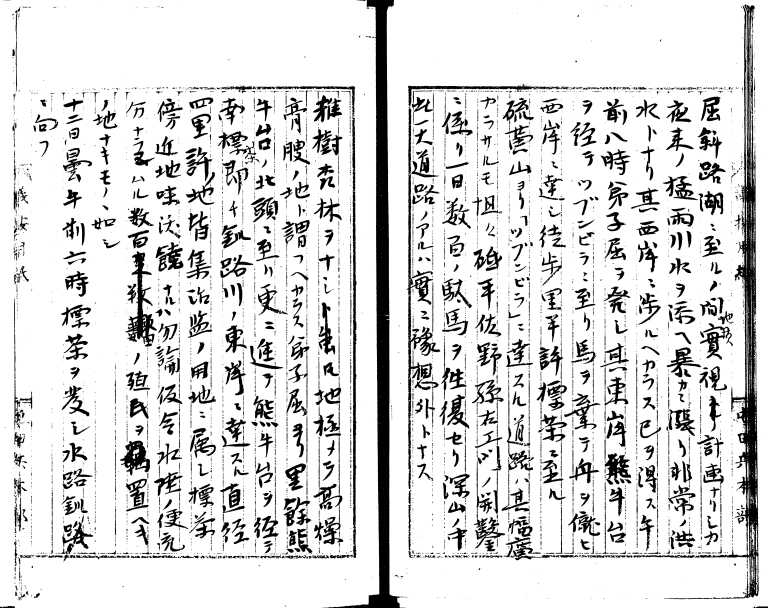 屈斜路湖ニ至ルノ間地形實視ノ計画ナリシカ
夜来ノ猛雨川水ヲ添ヘ暴カニ漲リ非常ノ洪
水トナリ其西岸ニ渉ルヘカラス已ヲ得ス午
前八時弟子屈ヲ発シ其東岸熊牛台
ヲ径テツブンビラニ至リ馬ヲ棄テ舟ヲ僦ヒ
西岸ニ達シ徒歩里半許標茶ニ至ル
硫黄山ヨリ「ツブンビラ」ニ達スル道路ハ其幅廣
カラサルモ坦々砥平佐野孫右エ門ノ開鑿
ニ係リ一日数百ノ駄馬ヲ往復セリ深山ノ中
此一大道路ノアルハ實ニ豫想外トナス
雑樹杏林ヲナシト虽モ地極メテ高燥
膏腴ノ地ト謂フヘカラス弟子屈ヨリ里餘熊
牛台ノ北頭ニ至リ更ニ進テ熊牛台ヲ径テ
南標茶即チ釧路川ノ東岸ニ達スル直径
四里許ノ地皆集治監ノ用地ニ属シ標茶
傍近地味沃饒ナルハ勿論仮令水陸ノ便充
分ナラサルム数百ノ殖民ヲ置ヘキ
ノ地ナキモノヽ如シ
十二日曇午前六時標茶ヲ発シ水路釧路
ニ向フ